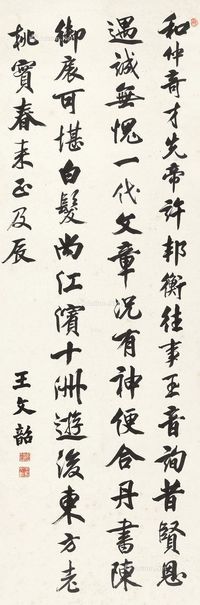 和仲奇才先帝許邦衡往事玉音詢昔賢恩
遇誠無愧一代文章況有神便合丹書陳
御扆可堪白髮尚江濱十洲遊後東方老
桃實春來正及辰
王文韶